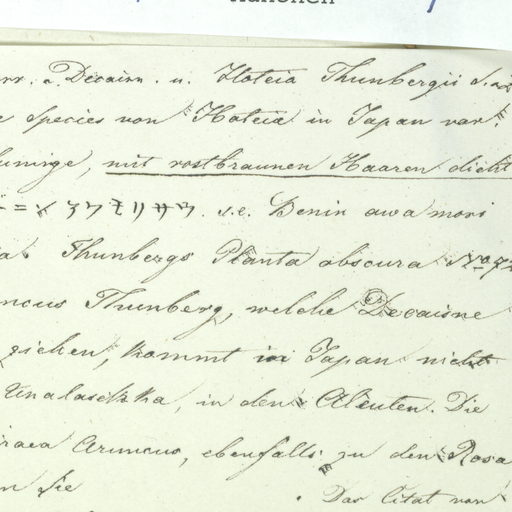 München
. Decaisn. u. Hoteia Thunbergii S.
species von Hoteia in Japan var.
mit rostbraunen Haaren dicht
ニンアワモリサウ. s.e. Benin awa mori
Thunbergs Planta obscura No 7
uncus Thunberg, welche Decaisne
ziehen, kommt in Japan nicht
Unalaschka, in den Alëuten. Die
iraea Aruncus, ebenfalls zu den Rosa
n sie . Das Citat von